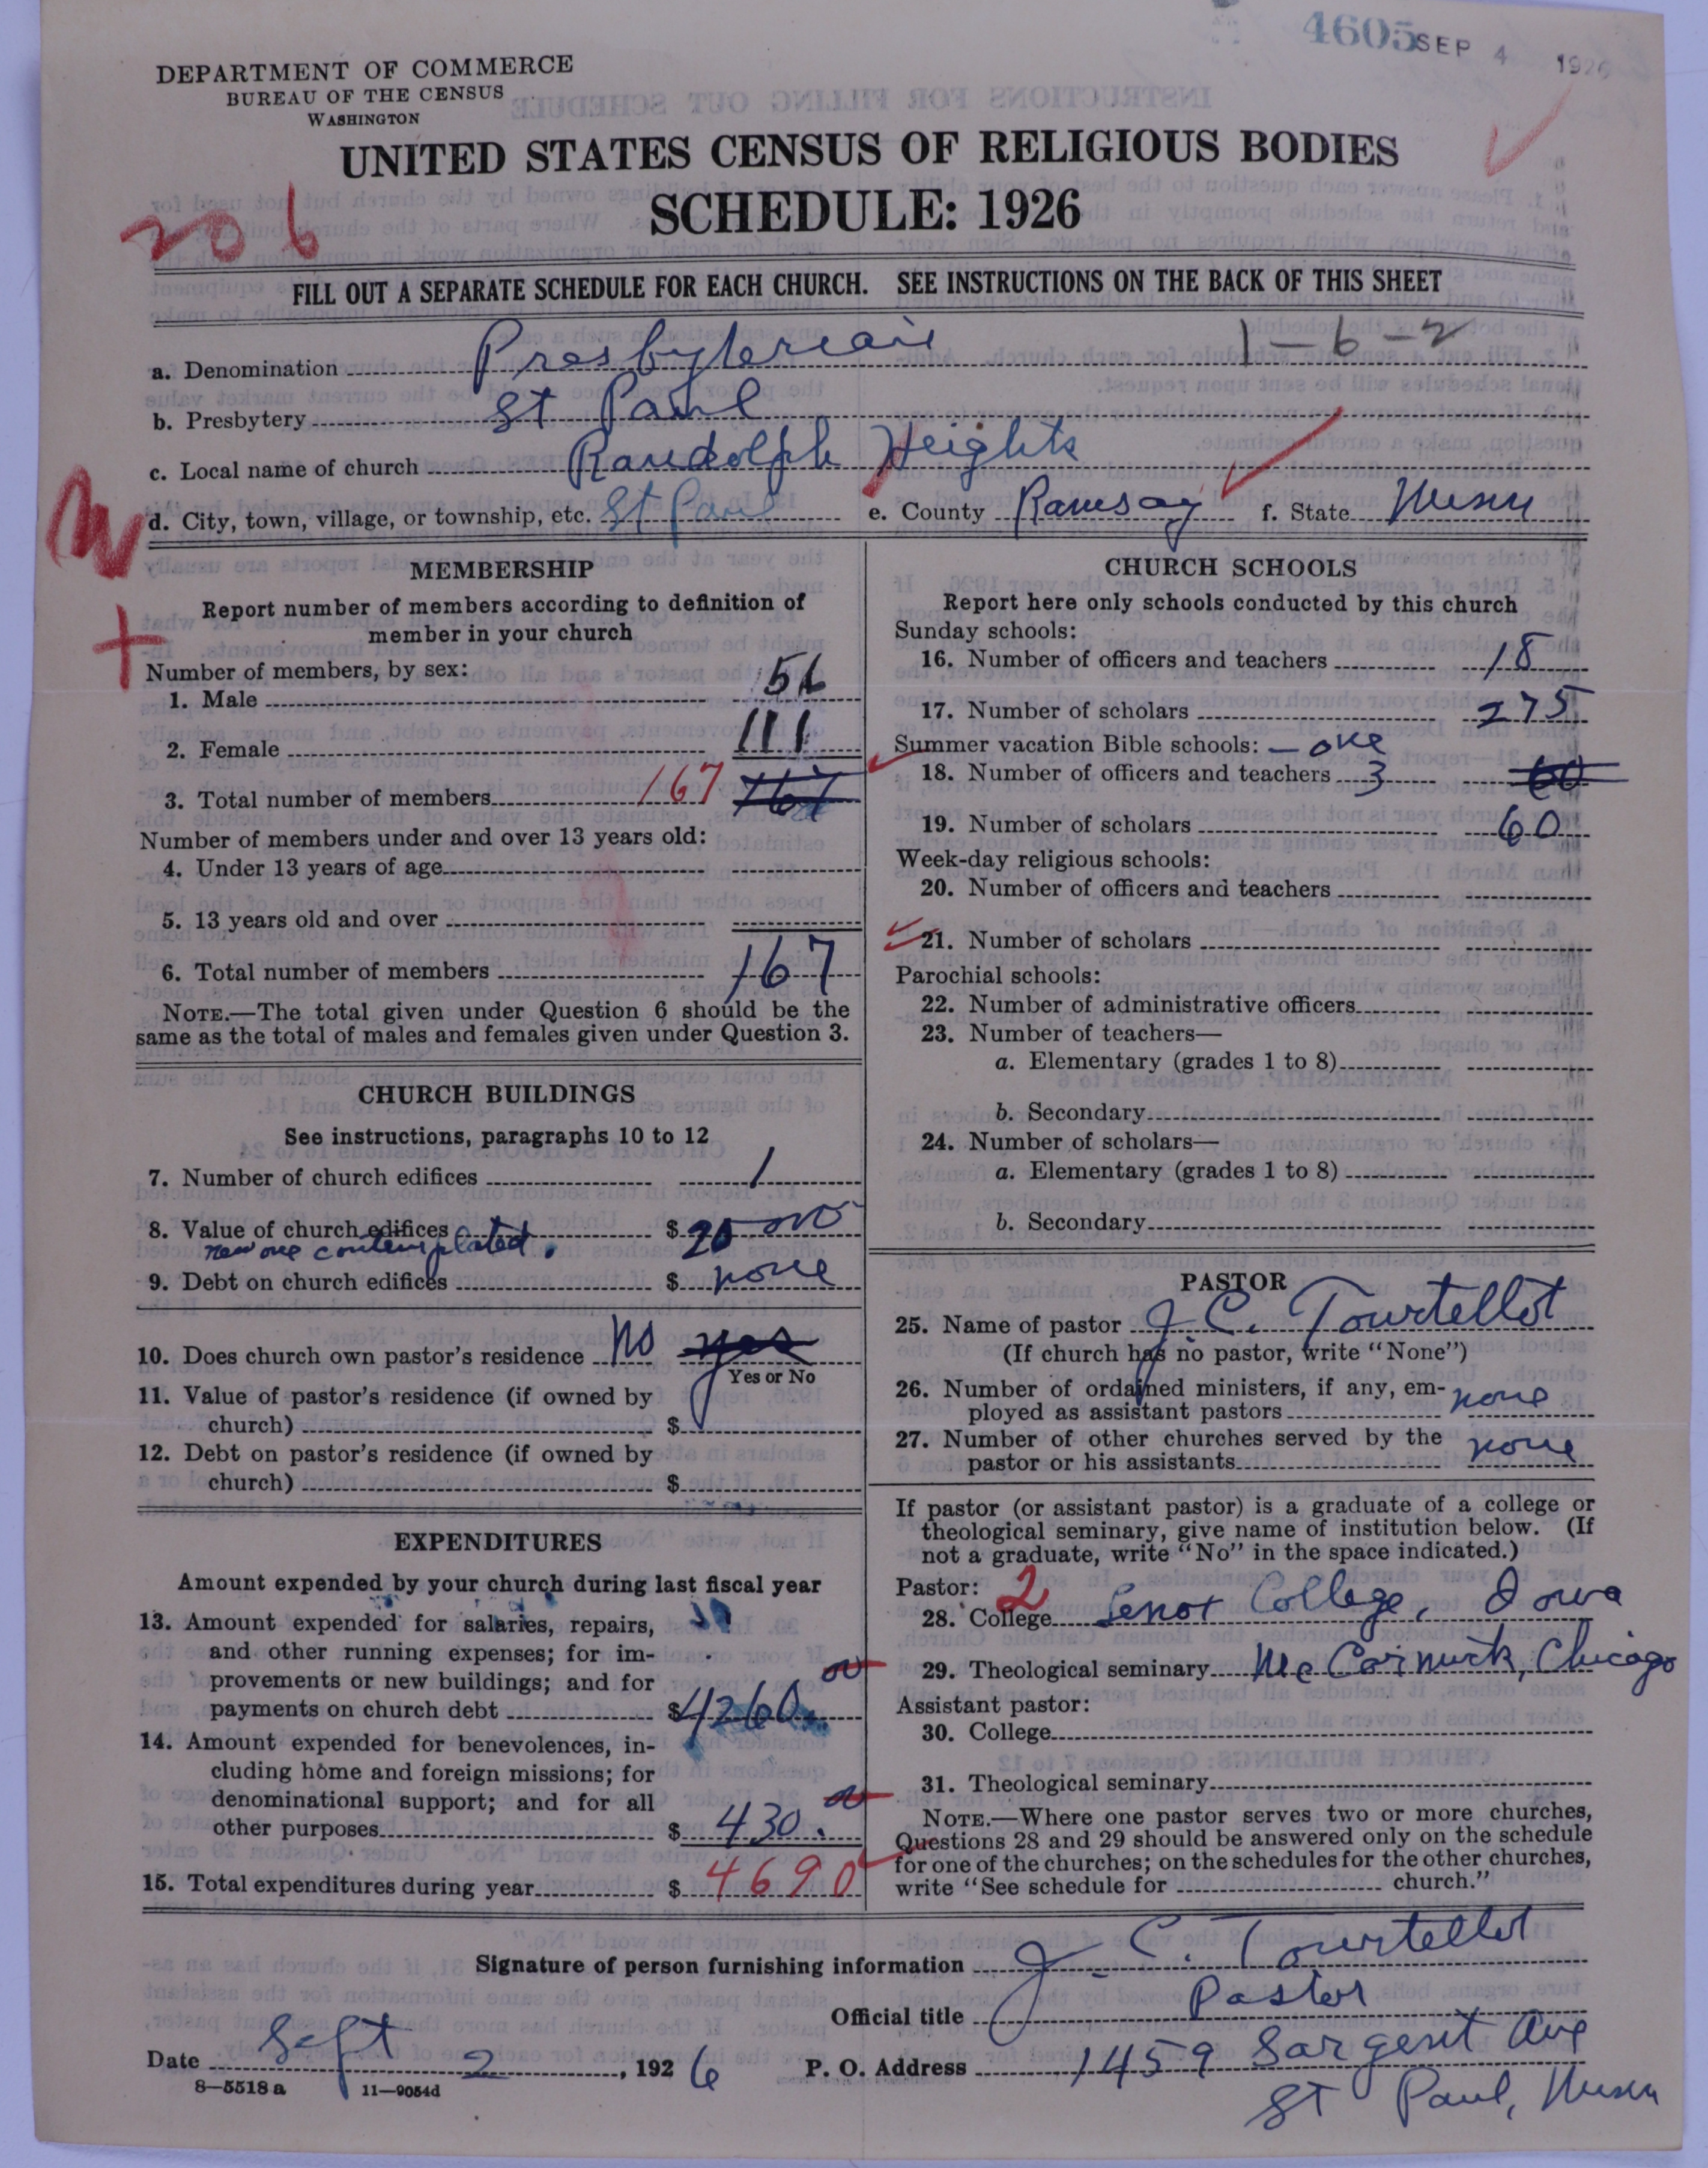 4605 SEP 4 1926
DEPARTMENT OF COMMERCE
BUREAU OF THE CENSUS
WASHINGTON
UNITED STATES CENSUS OF RELIGIOUS BODIES
SCHEDULE: 1926
206
FILL OUT A SEPARATE SCHEDULE FOR EACH CHURCH. SEE INSTRUCTIONS ON THE BACK OF THIS SHEET
1-6-2
a. Denomination Presbyterian
b. Presbytery St Paul
c. Local name of church Randolph Heights
d. City, town, village, or township, etc. St Paul e. County Ramsay f. State Minn
MEMBERSHIP
Report number of members according to definition of
member in your church
Number of members, by sex:
1. Male 56
2. Female 111
3. Total number of members 167 167
Number of members under and over 13 years old:
4. Under 13 years of age
5. 13 years old and over
6. Total number of members 167
NOTE.—The total given under Question 6 should be the
same as the total of males and females given under Question 3.
CHURCH BUILDINGS
See instructions, paragraphs 10 to 12
7. Number of church edifices 1
8. Value of church edifices $ 20 000
new one contemplated.
9. Debt on church edifices $ none
10. Does church own pastor's residence No yes
Yes or No
11. Value of pastor's residence (if owned by
church) $
12. Debt on pastor's residence (if owned by
church) $
EXPENDITURES
Amount expended by your church during last fiscal year
13. Amount expended for salaries, repairs,
and other running expenses; for im-
provements or new buildings; and for
payments on church debt $ 4260.00
14. Amount expended for benevolences, in-
cluding home and foreign missions; for
denominational support; and for all
other purposes $ 430.00
15. Total expenditures during year $ 4690
CHURCH SCHOOLS
Report here only schools conducted by this church
Sunday schools:
16. Number of officers and teachers 18
17. Number of scholars 275
Summer vacation Bible schools: - one
18. Number of officers and teachers 3 60
19. Number of scholars 60
Week-day religious schools:
20. Number of officers and teachers
21. Number of scholars
Parochial schools:
22. Number of administrative officers
23. Number of teachers—
a. Elementary (grades 1 to 8)
b. Secondary
24. Number of scholars—
a. Elementary (grades 1 to 8)
b. Secondary
PASTOR
25. Name of pastor J. C. Tourtellot
(If church has no pastor, write "None")
26. Number of ordained ministers, if any, em-
ployed as assistant pastors none
27. Number of other churches served by the
pastor or his assistants none
If pastor (or assistant pastor) is a graduate of a college or
theological seminary, give name of institution below. (If
not a graduate, write "No" in the space indicated.)
Pastor: 2
28. College Lenox College, Iowa
29. Theological seminary McCormick, Chicago
Assistant pastor:
30. College
31. Theological seminary
NOTE.—Where one pastor serves two or more churches,
Questions 28 and 29 should be answered only on the schedule
for one of the churches; on the schedules for the other churches,
write "See schedule for church."
Signature of person furnishing information J. C. Tourtellot
Official title Pastor
Date Sept 2, 1926 P. O. Address 1459 Sargent Ave
8—5518 a 11—9054d
St Paul, Minn